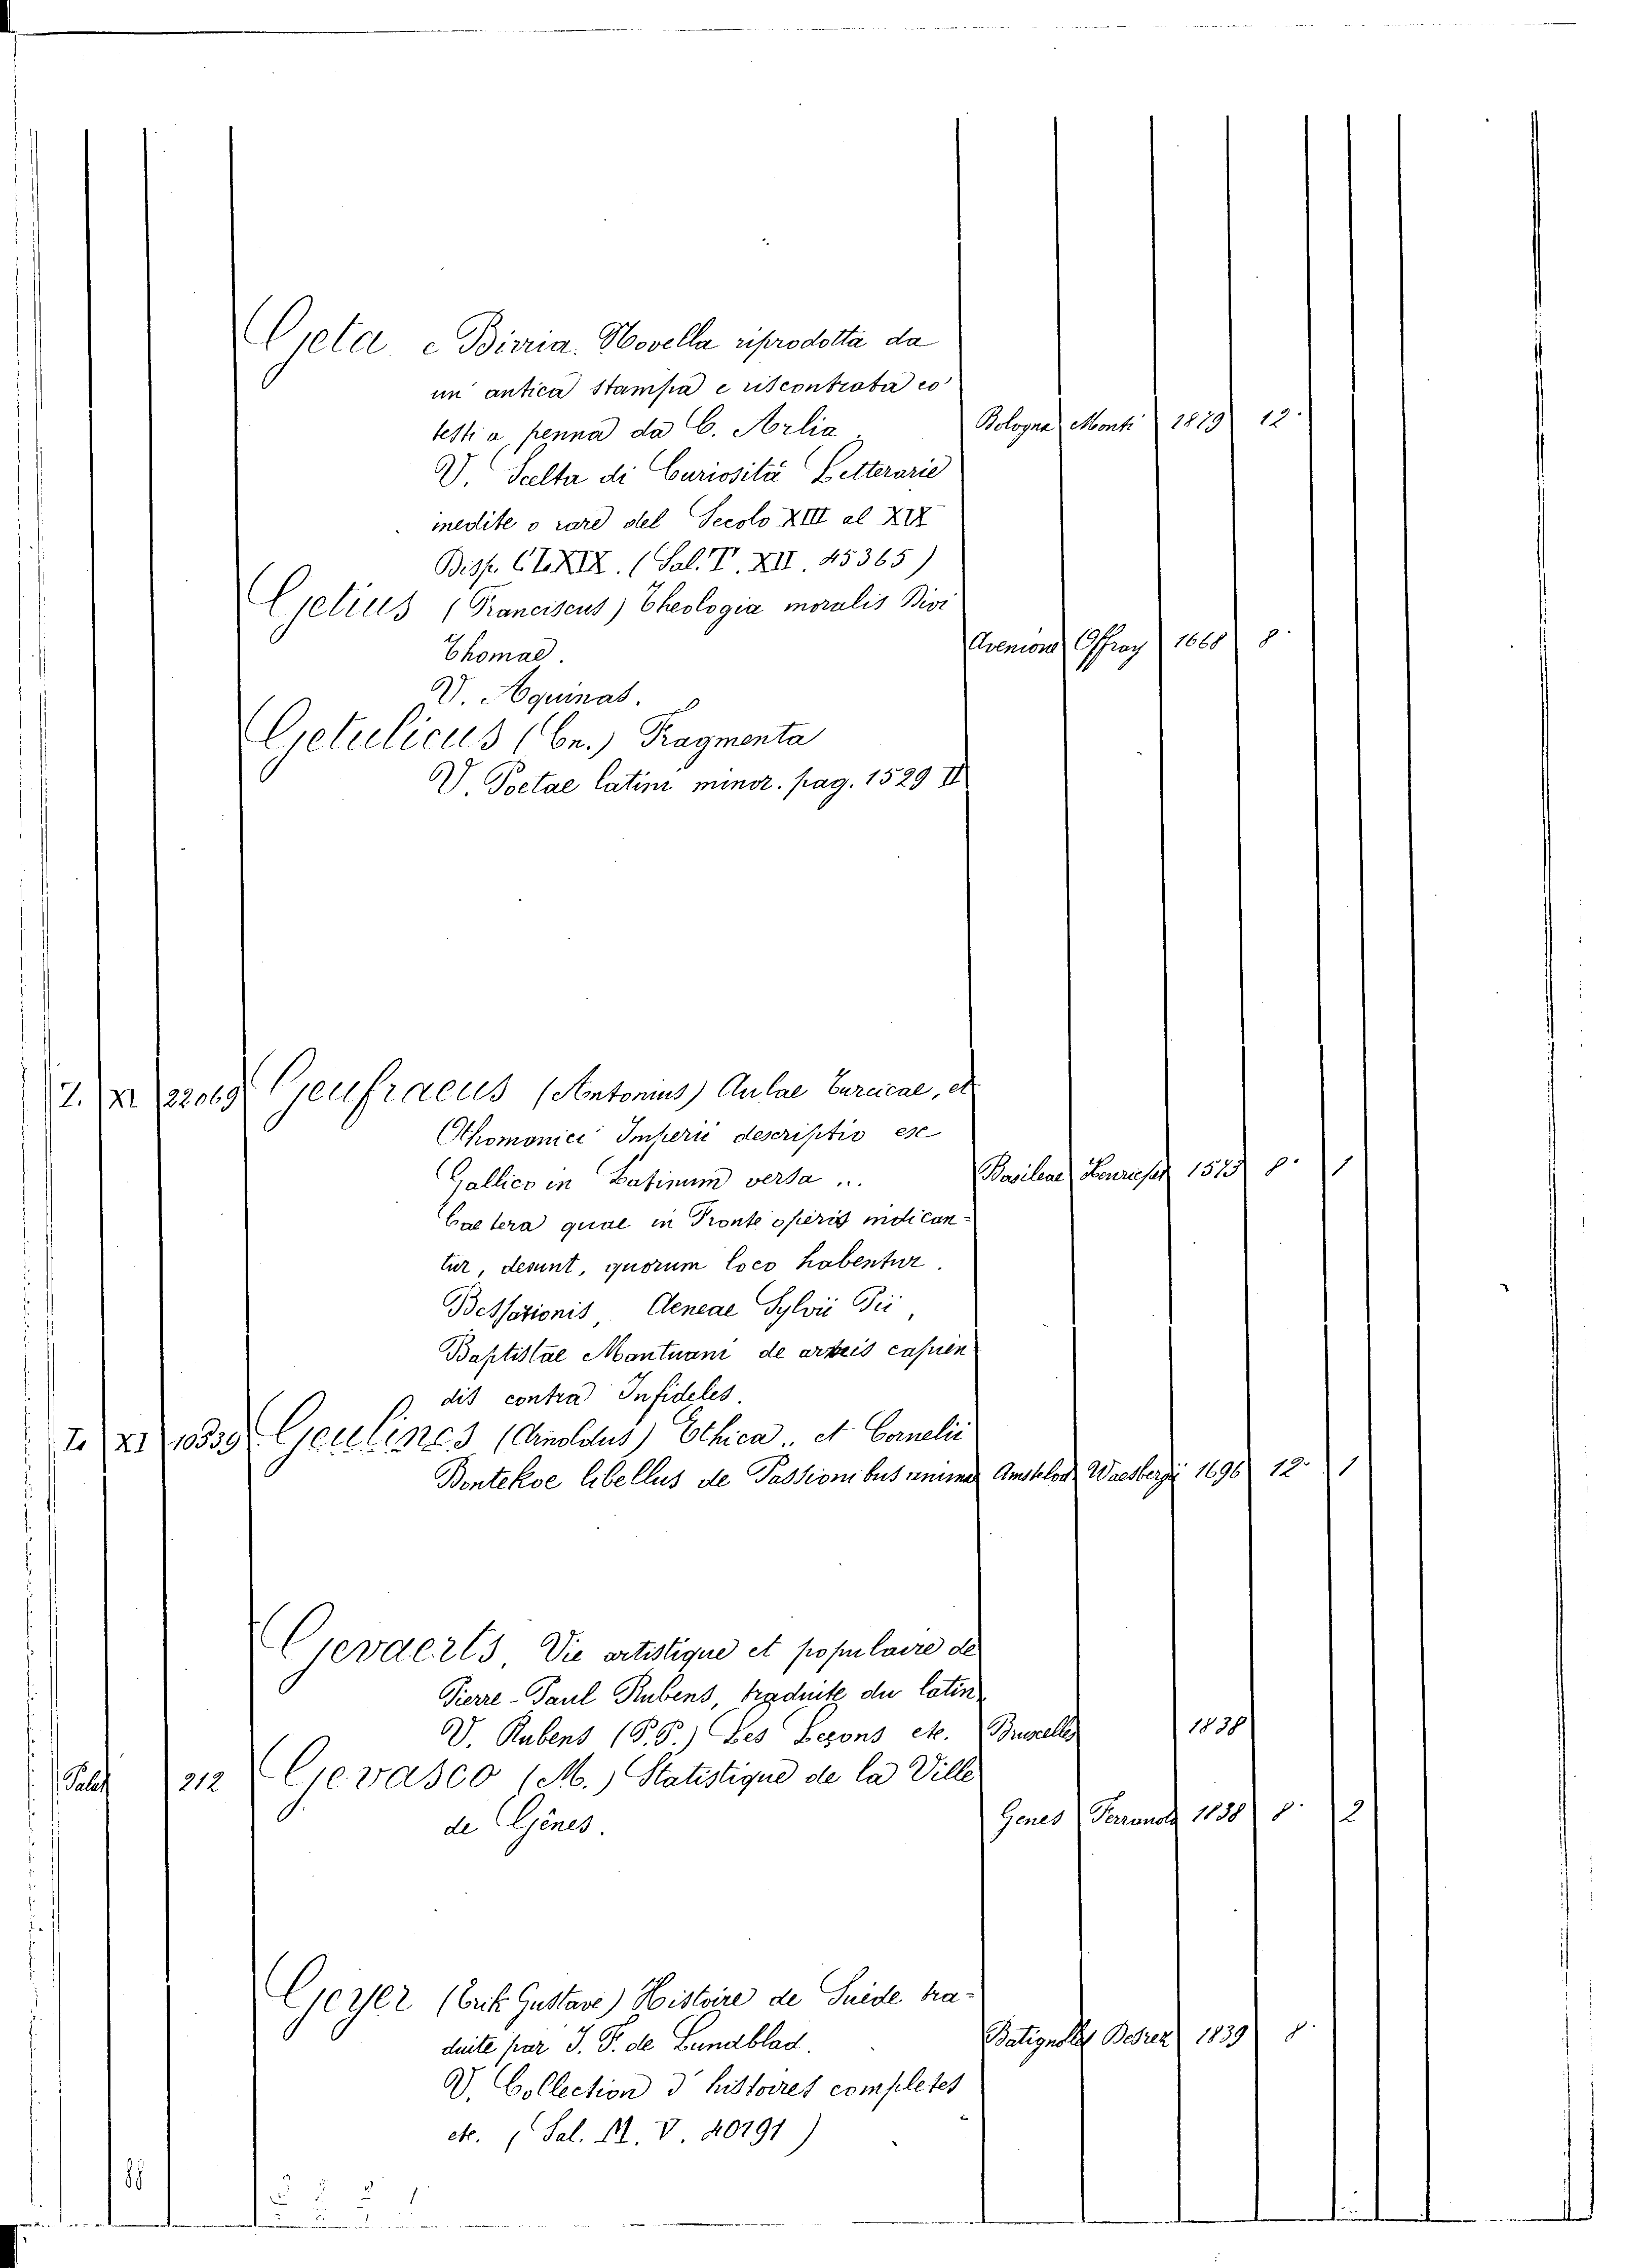 Geta e Birria. Novella riprodotta da
un' antica stampa e riscontrata co'
testi a penna da C. Arlia. Bologna Monti 1879 12°
V. Scelta di Curiosità Letterarie
inedite o rare del Secolo XIII al XIX
Disp. CLXIX. (Sal. T. XII. 45365)
Getius (Franciscus) Theologia moralis Divi
Thomae. Avenione Offray 1668 8°
V. Aquinas.
Getulicus (Cn.) Fragmenta
V. Poetae latini minor. pag. 1529 II
I. XI 22069 Geufraeus (Antonius) Aulae Turcicae, et
Othomanici Imperii descriptio ex
Gallico in Latinum versa ... Basileae Henricpet 1573 8° 1
Caetera quae in Fronte operis indican-
tur, desunt, quorum loco habentur.
Bessarionis, Aeneae Sylvii Pii,
Baptistae Mantuani de armis capien-
dis contra Infideles.
I. XI 10539 Geulincs (Arnoldus) Ethica .. et Cornelii
Bontekoe libellus de Passionibus animae Amstelod Waesbergii 1696 12° 1
Gevaerts, Vie artistique et populaire de
Pierre-Paul Rubens, traduite du latin
V. Rubens (P.P.) Les Leçons etc. Bruxelles 1838
Palch 212 Gevasco (M.) Statistique de la Ville
de Gênes. Genes Ferrando 1838 8° 2
Geyer (Erik Gustave) Histoire de Suède tra-
duite par J. F. de Lundblad. Batignolles 1839 8°
V. Collection d'histoires completes
etc. (Sal. M. V. 40791)
88